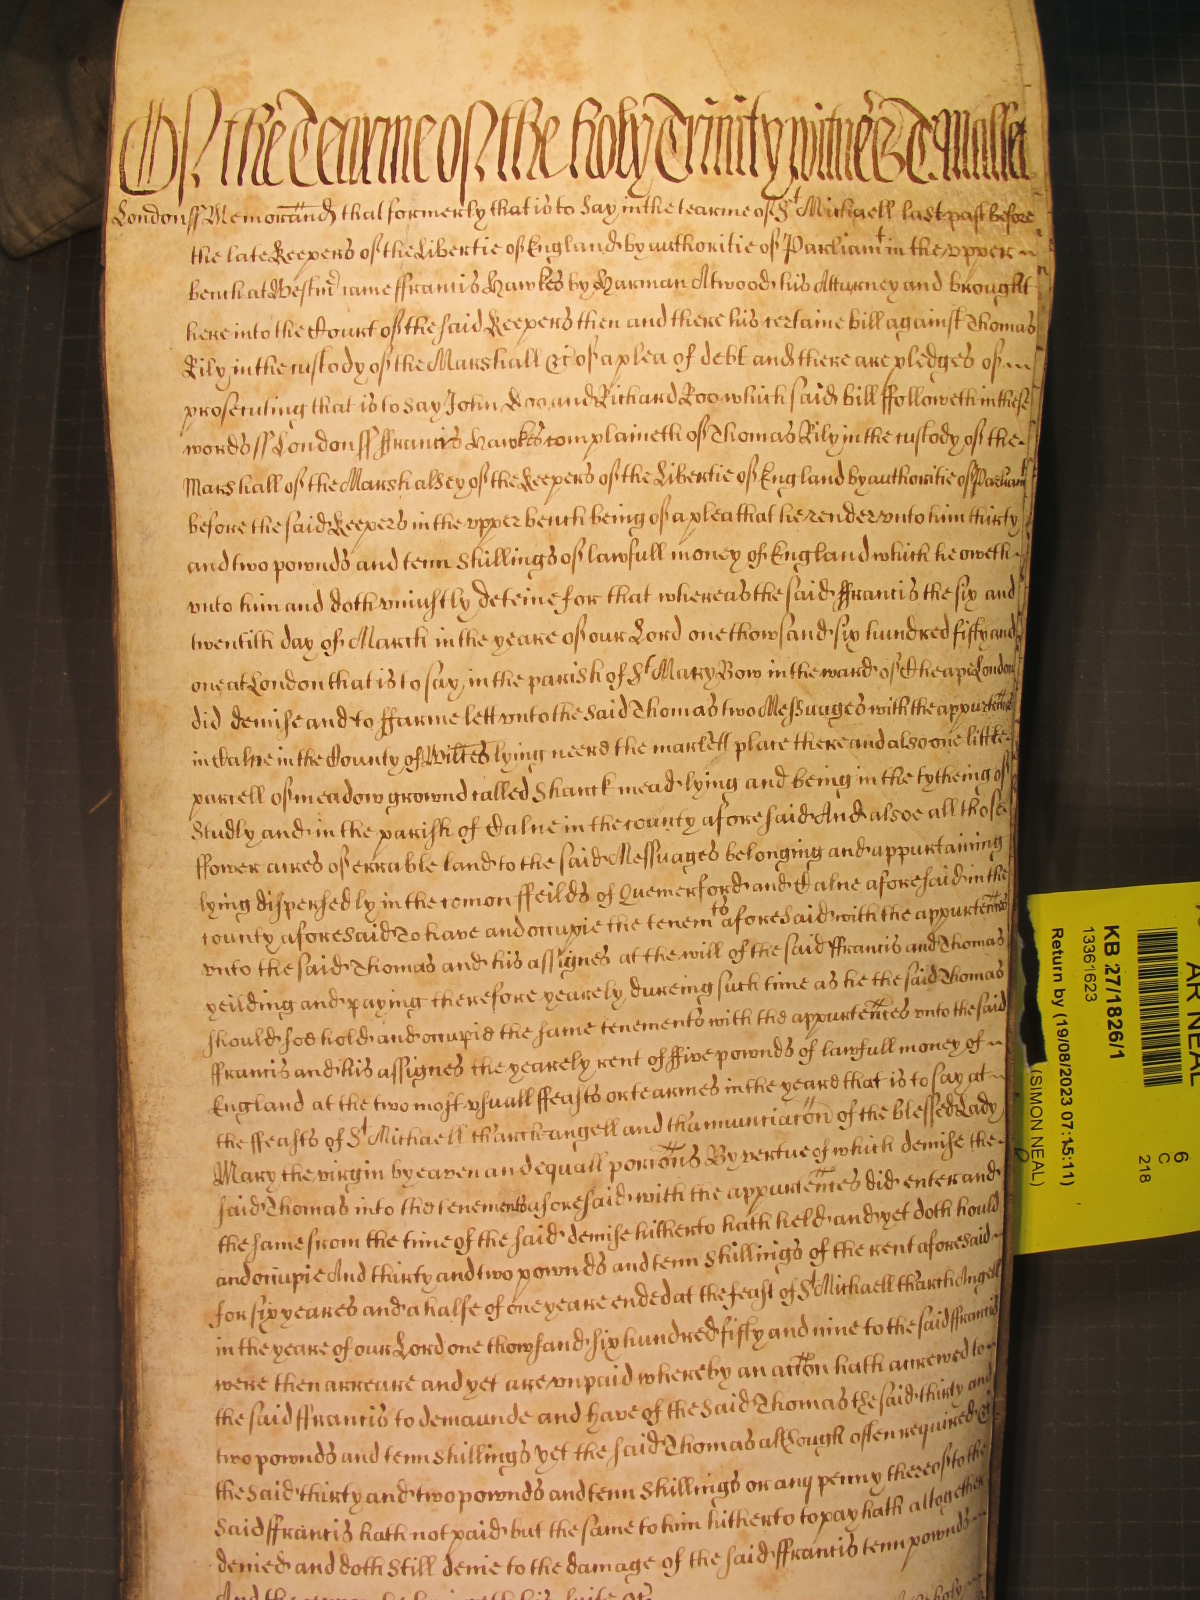 Of the Tearme of the holy Trinity witnes
London ss Memorand that formerly that is to Say in the tearme of St Michaell last past before
the late Keepers of the Libertie of England by authoritie of Parliamt in the vpper
bench at Westmr came ffrancis Hawkes by Harman Atwood his Atturney and brought
here into the Court of the said Keepers then and there his certaine bill against Thomas
Rily in the custody of the Marshall &c of a plea of debt and there are pledges of
prosecuting that is to say John Doo and Richard Roo which said bill ffolloweth in these
words ss London ss ffrancis Hawkes complaineth of Thomas Rily in the custody of the
Marshall of the Marshalsey of the Keepers of the Libertie of England by authoritie of Parliamt
before the said Keepers in the vpper bench being of a plea that he render vnto him thirty
and two pownds and tenn shillings of lawfull money of England which he oweth
vnto him and doth vniustly deteine for that whereas the said ffrancis the six and
twentith day of March in the yeare of our Lord one thowsand six hundred fifty and
one at London that is to say in the parish of St Mary Bow in the ward of Cheape London
did demise and to ffarme lett vnto the said Thomas two Messuages with the appurtences
in Calne in the County of Wiltes lying neere the markett place there and also one little
parcell of meadow grownd called Shanck mead lying and being in the tytheing of
Studly and in the parish of Calne in the county aforesaid And alsoe all those
ffower acres of errable land to the said Messuages belonging and appurtaining
lying dispersedly in the comon ffeilds of Quemerford and Calne aforesaid in the
county aforesaid To have and occupie the tenemts aforesaid with the appurtences
vnto the said Thomas and his assignes at the will of the said ffrancis and Thomas
yeilding and paying therefore yearely dureing such time as he the said Thomas
should soe hold and occupie the same tenements with the appurtences vnto the said
ffrancis and his assignes the yearely rent of ffive pownds of lawfull money of
England at the two most vsuall ffeasts or tearmes in the yeare that is to say at
the ffeasts of St Michaell tharchangell and thannunciacon of the blessed Lady
Mary the virgin by eaven and equall porcons By vertue of which demise the
said Thomas into the tenements aforesaid with the appurtences did enter and
the same from the time of the said demise hitherto hath held and yet doth hould
and occupie And thirty and two pownds and tenn shillings of the rent aforesaid
for six yeares and a halfe of one yeare ended at the feast of St Michaell tharchAngell
in the yeare of our Lord one thowsand six hundred fifty and nine to the said ffrancis
were then arreare and yet are vnpaid whereby an accon hath accrewed to
the said ffrancis to demaunde and have of the said Thomas the said thirty and
two pownds and tenn shillings yet the said Thomas although often required &c
the said thirty and two pownds and tenn shillings or any penny thereof to the
said ffrancis hath not paid but the same to him hitherto to pay hath altogether
denied and doth still denie to the damage of the said ffrancis tenn pownds
And
AR NEAL
KB 27/1826/1
13361623
Return by (19/08/2023 07:15:11)
(SIMON NEAL)
6
C
218